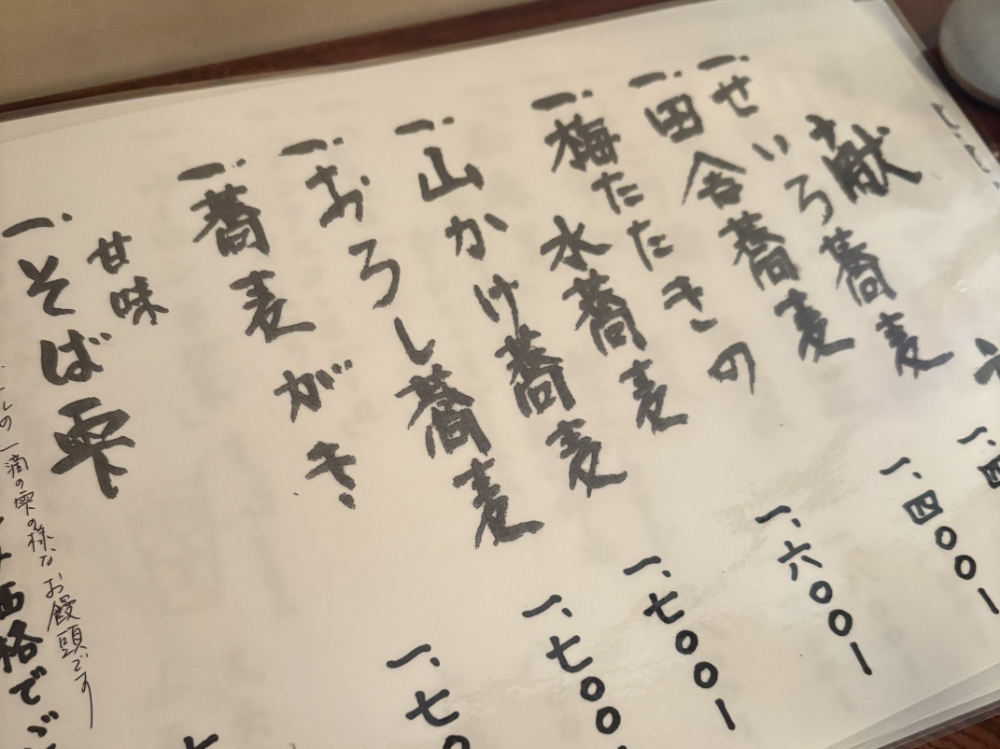 献
一.せいろ蕎麦 一.四
一.田舎蕎麦 一.四〇〇ー
一.梅たたきの
水蕎麦 一.六〇〇ー
一.山かけ蕎麦 一.七〇〇ー
一.おろし蕎麦 一.七〇〇
一.蕎麦がき 一.七〇
甘味
一.そば雫
の一滴の雫の様なお饅頭です
価格で